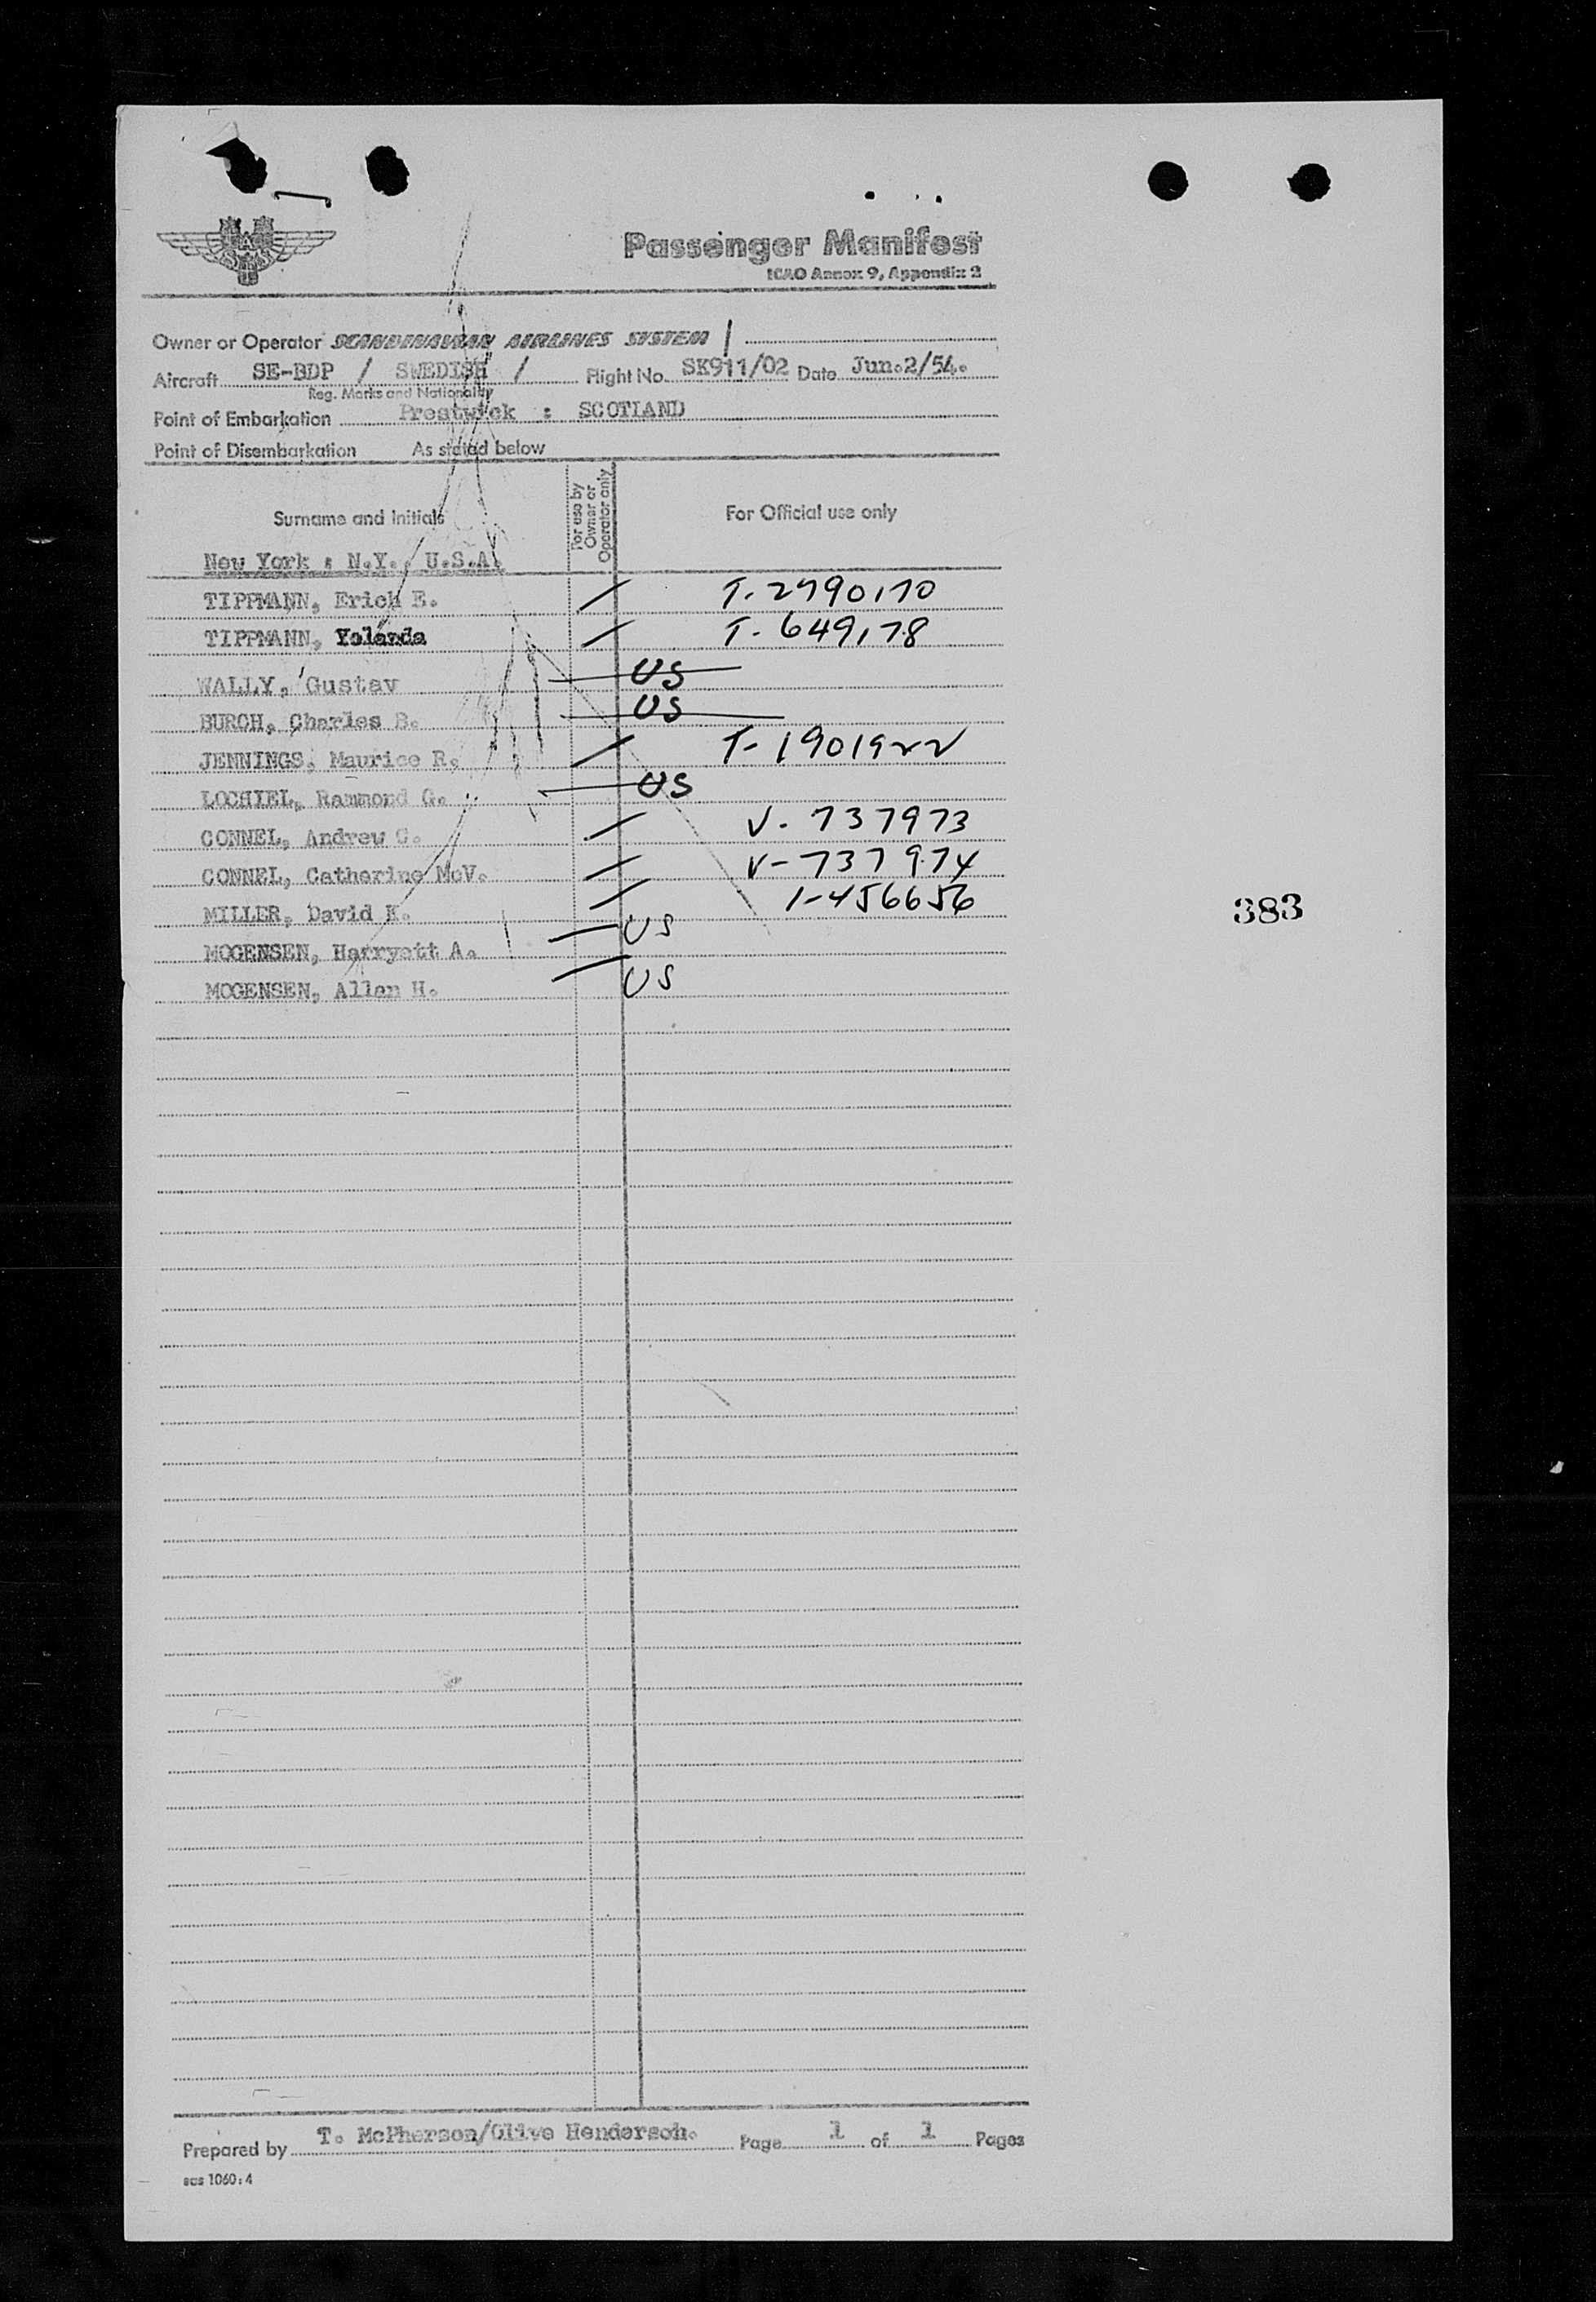 SAS
Passenger Manifest
ICAO Annex 9, Appendix 2
Owner or Operator SCANDINAVIAN AIRLINES SYSTEM /
Aircraft SE-BDP / SWEDISH / Flight No. SK911/02 Date Jun.2/54.
Reg. Marks and Nationality
Point of Embarkation Prestwick : SCOTLAND
Point of Disembarkation As stated below
Surname and Initials For use by Owner or Operator only For Official use only
New York : N.Y. U.S.A.
TIPPMANN, Erich E. T-2790170
TIPPMANN, Yolanda T-649178
WALLY, Gustav US
BURCH, Charles B. US
JENNINGS, Maurice R. T-1901922
LOCHIEL, Rammond G. US
CONNEL, Andrew C. V-737973
CONNEL, Catherine McV. V-737974
MILLER, David K. 1-456656
383
MOGENSEN, Harryett A. US
MOGENSEN, Allen H. US
Prepared by T. McPherson/Olive Henderson. Page 1 of 1 Pages
sas 1060:4